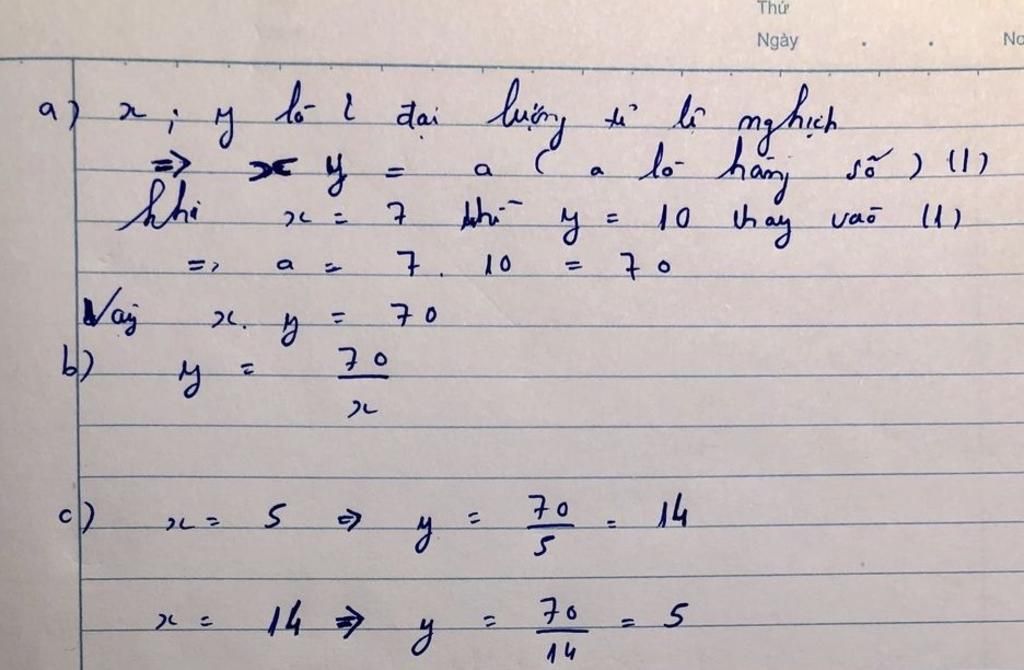 Thứ
Ngày . . No
a) x ; y là 2 đại lượng tỉ lệ nghịch
=> x y = a ( a là hằng số ) (1)
Khi x = 7 thì y = 10 thay vào (1)
=> a = 7 . 10 = 70
Vậy x . y = 70
b) y = 70/x
c) x = 5 => y = 70/5 = 14
x = 14 => y = 70/14 = 5